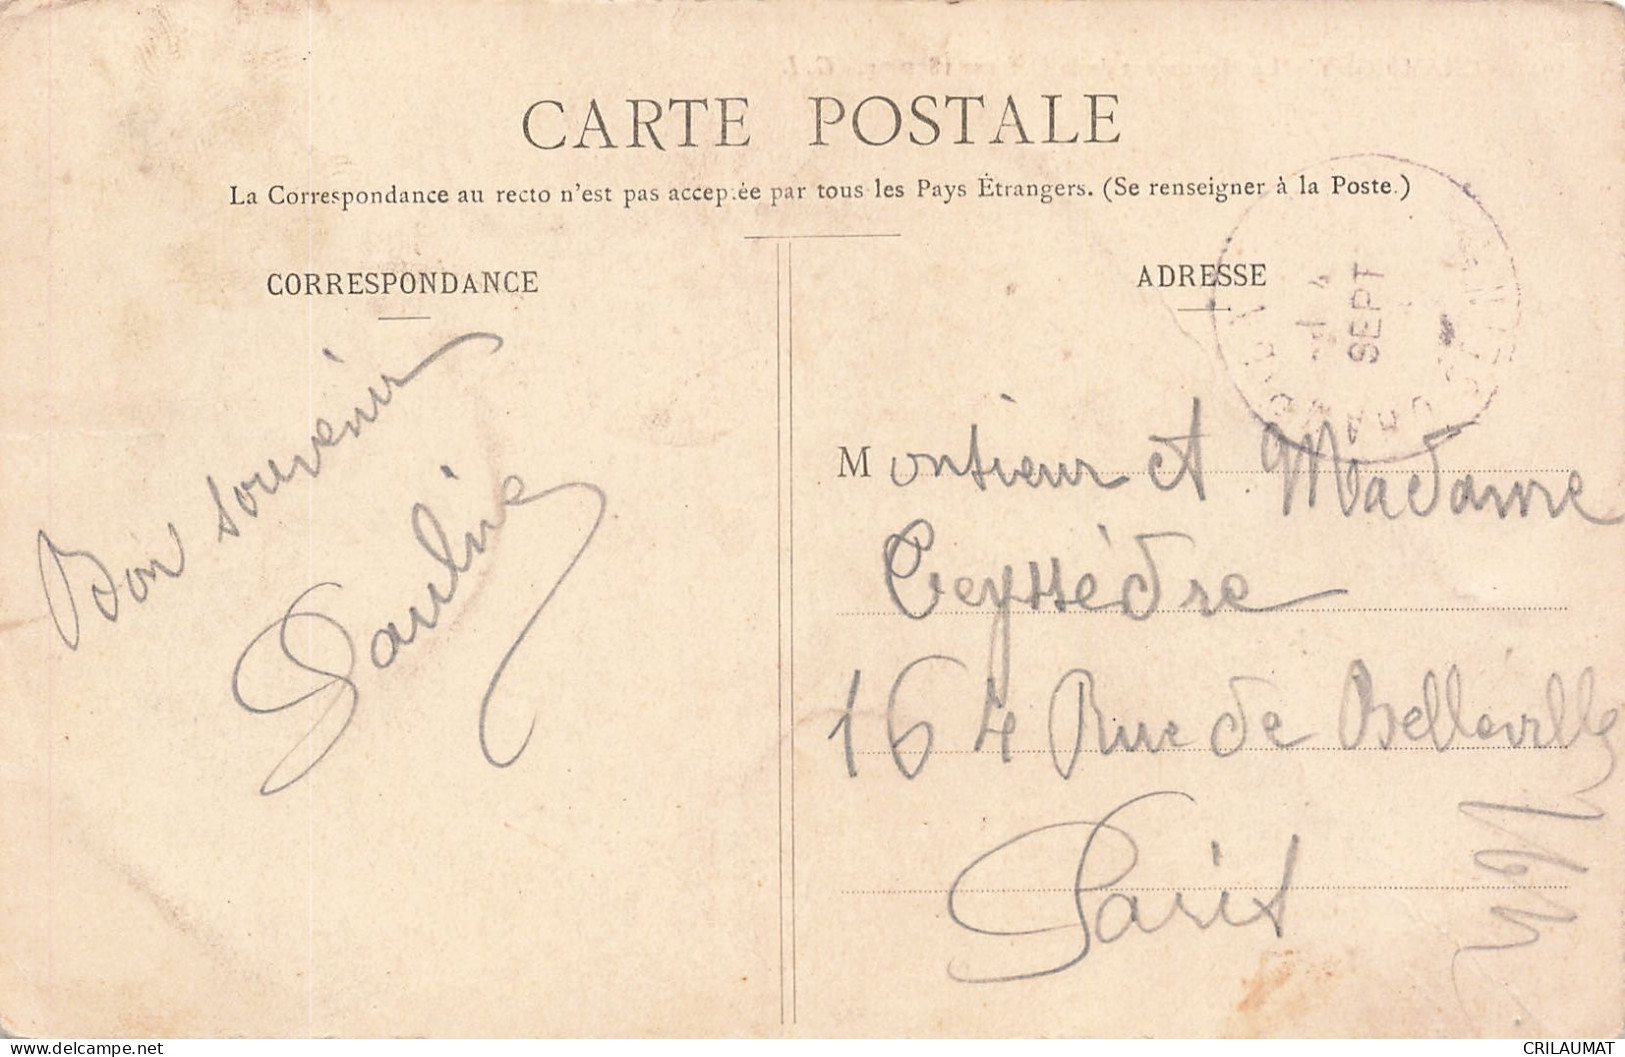 CARTE POSTALE
La Correspondance au recto n'est pas acceptée par tous les Pays Étrangers. (Se renseigner à la Poste.)
CORRESPONDANCE
ADRESSE
SEPT
Bon souvenir
Pauline
Monsieur et Madame
Ceyssèdre
164 Rue de Belleville
Paris
CRILAUMAT